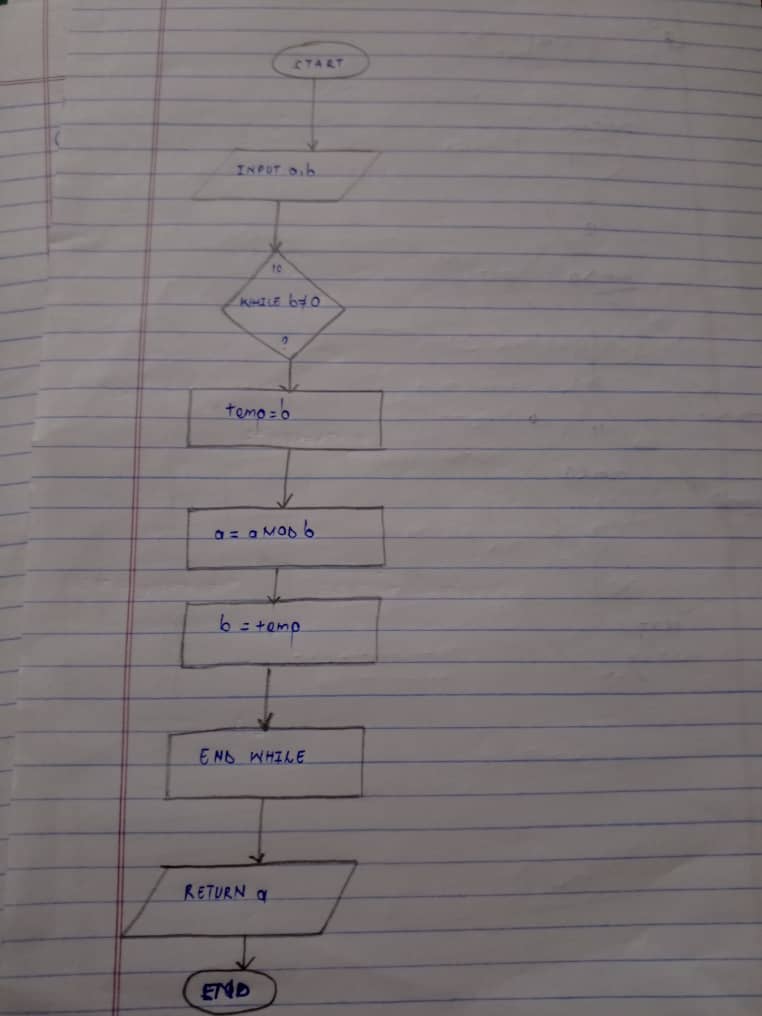 START
INPUT a,b
IS
WHILE b≠0
?
temp=b
a = a MOD b
b = temp
END WHILE
RETURN a
END